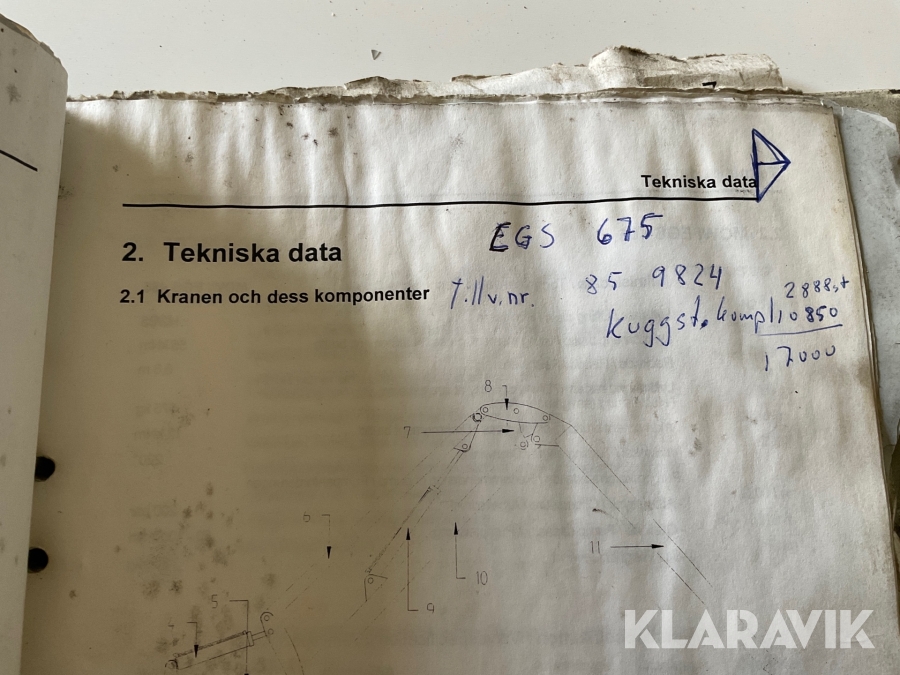 Tekniska data
EGS 675
2. Tekniska data
2.1 Kranen och dess komponenter
Tillv.nr. 85 9824
2888st
Kuggst. kompl 10850
17000
8
7
6
11
10
9
5
4
KLARAVIK